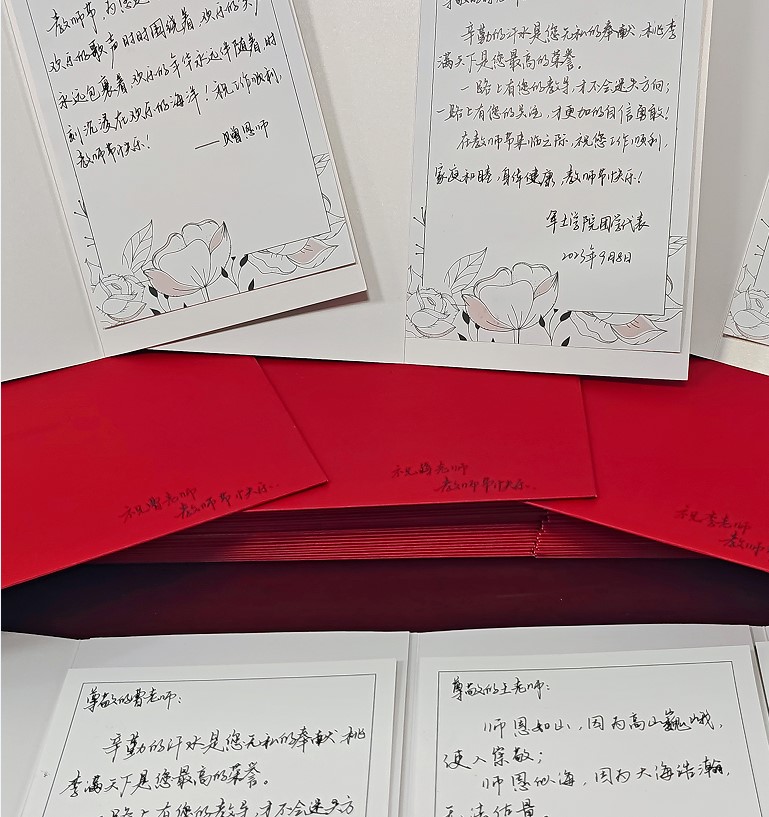 教师节,为您送
欢乐的歌声时时围绕着,欢乐的
永远包裹着,欢乐的年华永远伴随着时
刻沉浸在欢乐的海洋!祝工作顺利,
教师节快乐!
——赠恩师
辛勤的汗水是您无私的奉献,桃李
满天下是您最高的荣誉。
一路上有您的教导,才不会迷失方向;
一路上有您的关注,才更加的自信勇敢!
在教师节来临之际,祝您工作顺利,
家庭和睦,身体健康,教师节快乐!
军士学院国学代表
2023年9月8日
祝曾老师
教师节快乐..
祝 老师
教师节快乐..
祝李老师
教师
尊敬的曹老师:
辛勤的汗水是您无私的奉献,桃
李满天下是您最高的荣誉。
一路上有您的教导,才不会迷失方
尊敬的王老师:
师恩如山,因为高山巍峨,
使人崇敬;
师恩似海,因为大海浩瀚,
无法估量。